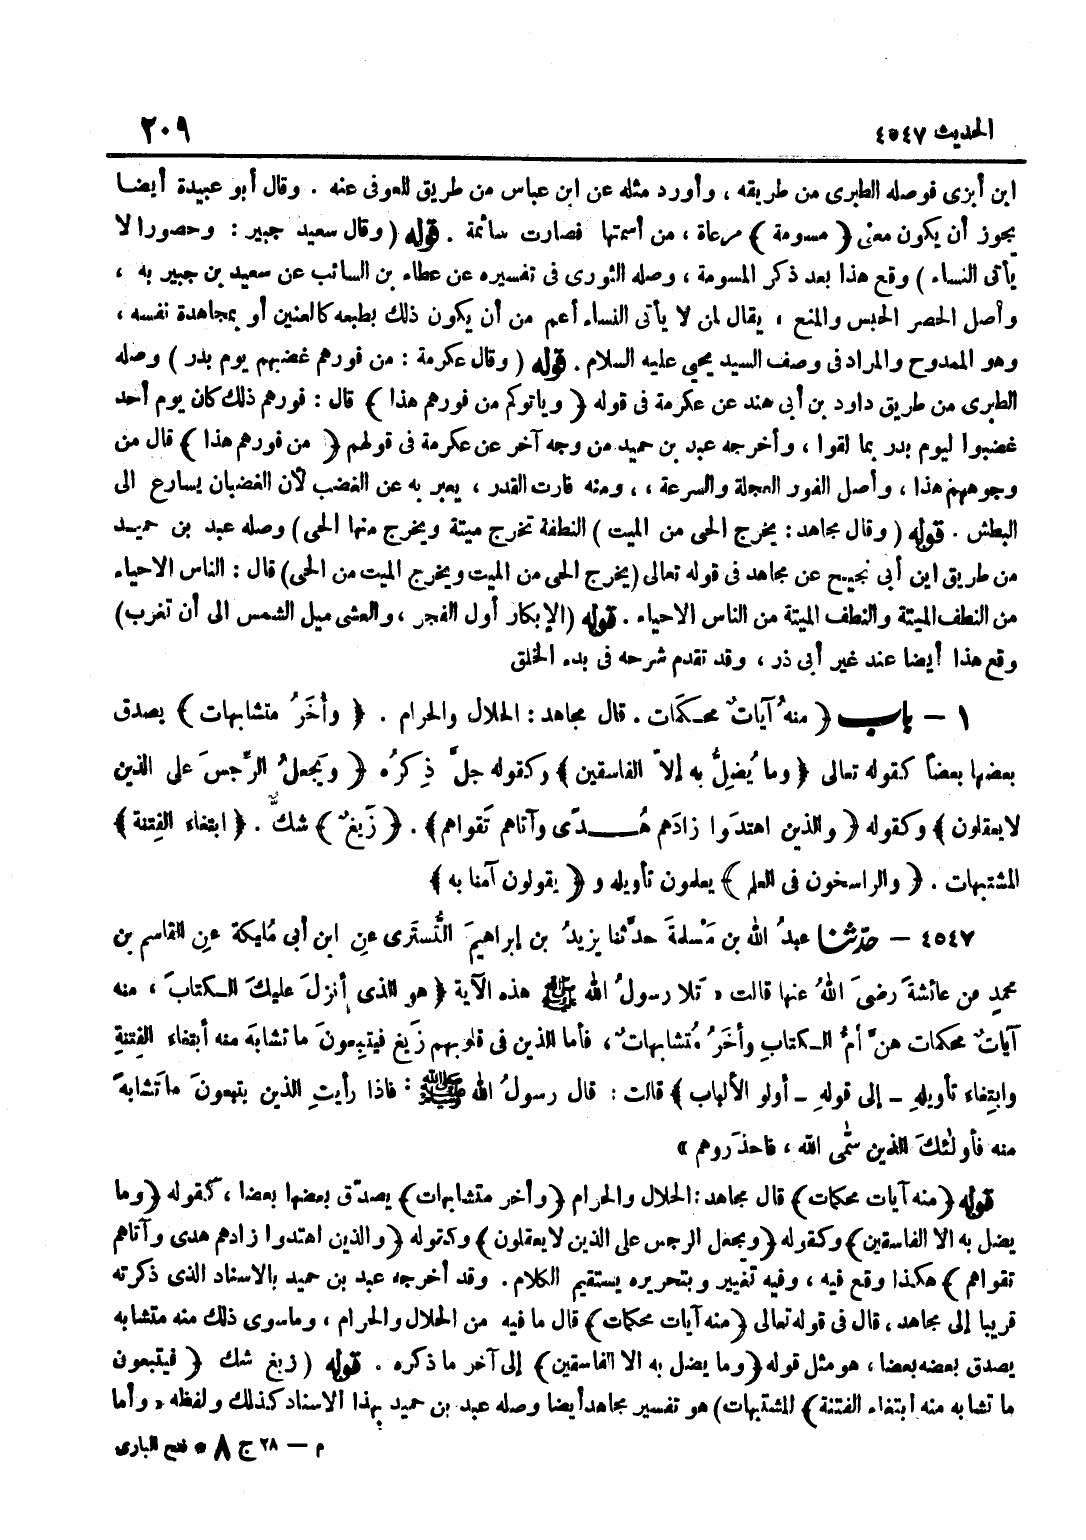 الحديث ٤٥٤٧ ٢٠٩
ابن أبزى فوصله الطبرى من طريقه ، وأورد مثله عن ابن عباس من طريق للعوفى عنه . وقال أبو عبيدة أيضا
يجوز أن يكون معنى ﴿ مسومة ﴾ مرعاة ، من أسمتها فصارت سائمة . قوله ( وقال سعيد جبير : وحصورا لا
يأتى النساء ) وقع هذا بعد ذكر المسومة ، وصله الثورى فى تفسيره عن عطاء بن السائب عن سعيد بن جبير به ،
وأصل الحصر الحبس والمنع ، يقال لمن لا يأتى النساء أعم من أن يكون ذلك بطبعه كالعنين أو بمجاهدة نفسه ،
وهو الممدوح والمراد فى وصف السيد يحيى عليه السلام . قوله ( وقال عكرمة : من فورهم غضبهم يوم بدر ) وصله
الطبرى من طريق داود بن أبى هند عن عكرمة فى قوله ﴿ وياتوكم من فورهم هذا ﴾ قال : فورهم ذلك كان يوم أحد
غضبوا ليوم بدر بما لقوا ، وأخرجه عبد بن حميد من وجه آخر عن عكرمة فى قولهم ﴿ من فورهم هذا ﴾ قال من
وجوههم هذا ، وأصل الفور العجلة والسرعة ، ، ومنه فارت القدر ، يعبر به عن الغضب لأن الغضبان يسارع الى
البطش . قوله ( وقال مجاهد : يخرج الحى من الميت ) النطفة تخرج ميتة ويخرج منها الحى ) وصله عبد بن حميد
من طريق ابن أبى نجيح عن مجاهد فى قوله تعالى ﴿يخرج الحى من الميت ويخرج الميت من الحى﴾ قال : الناس الاحياء
من النطف الميتة والنطف الميتة من الناس الاحياء . قوله ( الإبكار أول الفجر ، والعشى ميل الشمس الى أن تغرب )
وقع هذا أيضا عند غير أبى ذر ، وقد تقدم شرحه فى بدء الخلق
١ – باب ﴿ منهُ آياتٌ محكمَات . قال مجاهد : الحلال والحرام . ﴿ وأُخَرُ متشابهات ﴾ يصدق
بعضها بعضاً كقوله تعالى ﴿ وما يُضلُّ به إلاّ الفاسقين ﴾ وكقوله جلّ ذِكرُه ﴿ ويَجعلُ الرِّجسَ على الذين
لا يعقلون ﴾ وكقوله ﴿ والذين اهتدَوا زادَهم هُــدًى وآتاهم تَقواهم ﴾ . ﴿ زَيغٌ ﴾ شكٌّ . ﴿ ابتغاء الفِتنة ﴾
المشتبهات . ﴿ والراسخون فى العلم ﴾ يعلمون تأويله و ﴿ يقولون آمنا به ﴾
٤٥٤٧ – حدّثنا عبدُ الله بن مَسْلمةَ حدَّثنا يزيدُ بن إبراهيمَ التُّستَرى عنِ ابن أبى مُليكة عنِ القاسم بن
محمدٍ عن عائشةَ رضىَ اللهُ عنها قالت « تلا رسولُ الله ﷺ هذه الآية ﴿ هو الذى أَنزلَ عليكَ الـكتابَ ، منه
آياتٌ محكمات هنَّ أمُّ الـكتابِ وأُخَرُ مُتشابهاتٌ ، فأما الذين فى قلوبهم زَيغٌ فيتبِعونَ ما تشابهَ منه أبتغاء الفتنةِ
وابتِغاء تأويلهِ ـ إلى قولهِ ـ أولو الألباب ﴾ قالت : قال رسولُ الله ﷺ : فاذا رأيتِ الذين يتبعونَ ما تَشابهَ
منه فأولئكَ الذين سمَّى الله ، فاحذَروهم »
قوله ﴿ منه آيات محكمات ﴾ قال مجاهد : الحلال والحرام ﴿ وأخر متشابهات ﴾ يصدّق بعضها بعضا ، كقوله ﴿ وما
يضل به الا الفاسقين ﴾ وكقوله ﴿ ويجعل الرجس على الذين لا يعقلون ﴾ وكقوله ﴿ والذين اهتدوا زادهم هدى وآتاهم
تقواهم ﴾ هكذا وقع فيه ، وفيه تغيير وبتحريره يستقيم الكلام . وقد أخرجه عبد بن حميد بالاسناد الذى ذكرته
قريبا إلى مجاهد ، قال فى قوله تعالى ﴿ منه آيات محكمات ﴾ قال ما فيه من الحلال والحرام ، وما سوى ذلك منه متشابه
يصدق بعضه بعضا ، هو مثل قوله ﴿ وما يضل به الا الفاسقين ﴾ إلى آخر ما ذكره . قوله ( زيغ شك ﴿ فيتبعون
ما تشابه منه ابتغاء الفتنة ﴾ المشتبهات ) هو تفسير مجاهد أيضا وصله عبد بن حميد بهذا الاسناد كذلك ولفظه « وأما
م — ٢٨ ج ٨ * فتح البارى